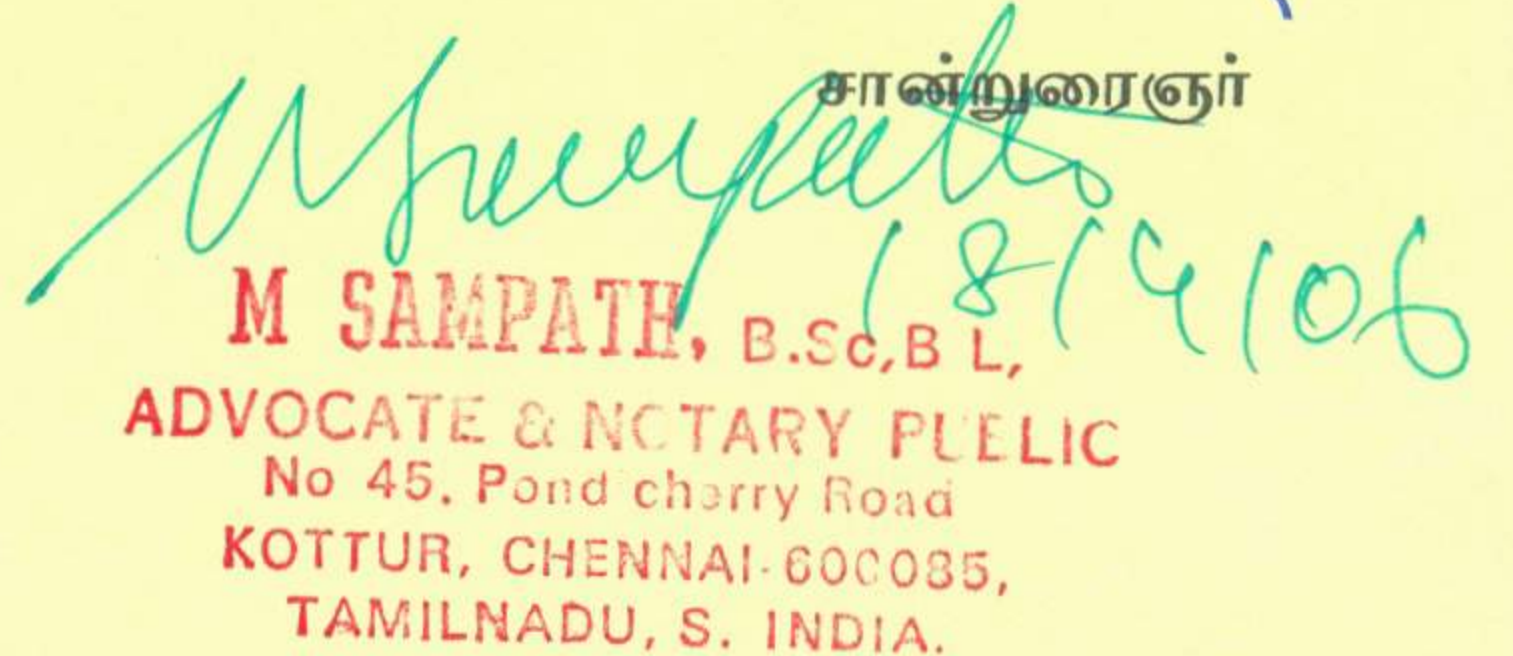 சான்றுரைஞர்
M Sampath
18/4/06
M SAMPATH, B.Sc,B L,
ADVOCATE & NOTARY PUBLIC
No 45. Pond cherry Road
KOTTUR, CHENNAI-600085,
TAMILNADU, S. INDIA.